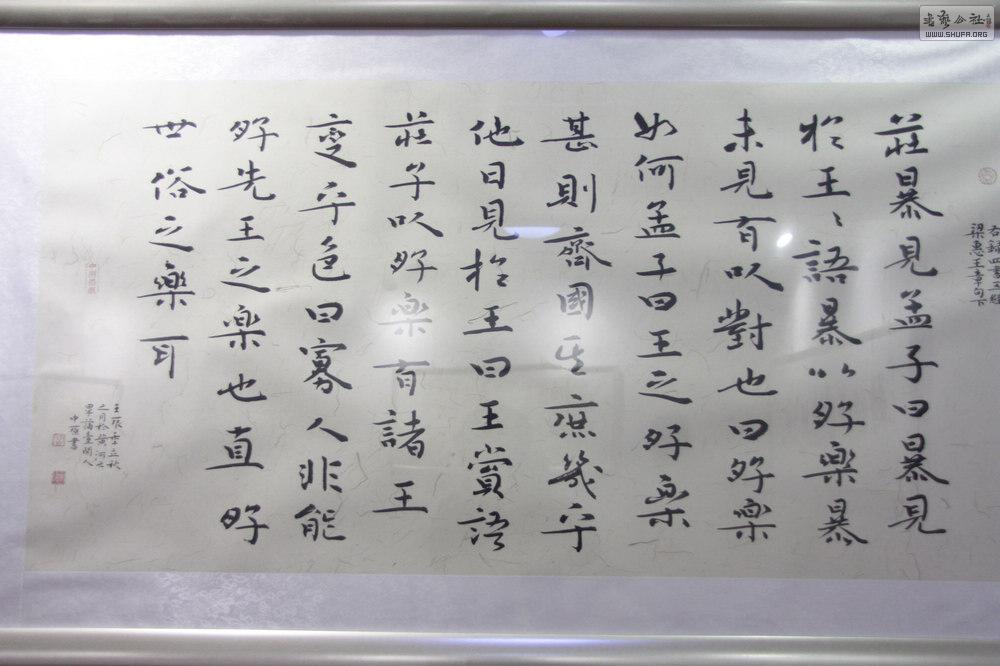 右錄四書五經
梁惠王章句下
莊暴見孟子曰暴見
於王〻語暴以好樂暴
未見有以對也曰好樂
如何孟子曰王之好樂
甚則齊國其庶幾乎
他日見於王曰王嘗語
莊子以好樂有諸王
變乎色曰寡人非能
好先王之樂也直好
世俗之樂耳
壬辰年立秋
之月於黃河
書藝公社
WWW.SHUFA.ORG